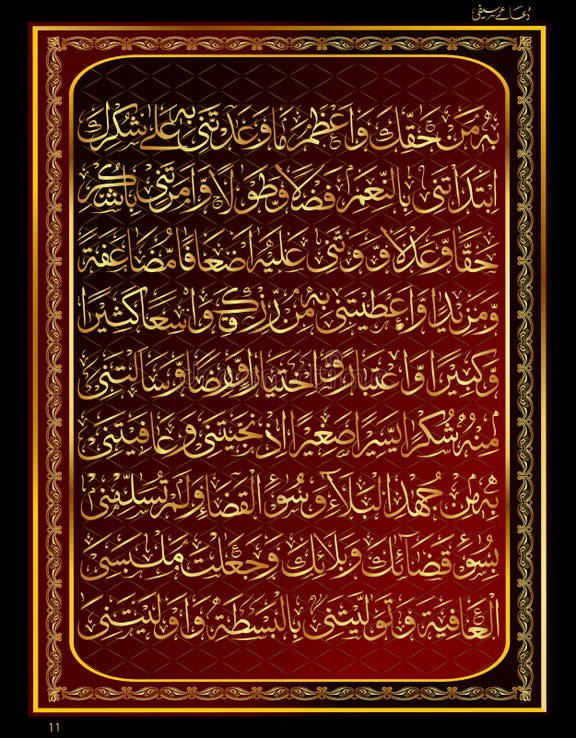 دعائے سیفی
بِهٖ مِنْ حَقِّكَ وَاَعْظَمَ مَا وَعَدْتَنِیْ بِهٖ عَلٰی شُكْرِكَ
اِبْتَدَاْتَنِیْ بِالنِّعَمِ فَضْلًا وَّطَوْلًا وَّاَمَرْتَنِیْ بِالشُّكْرِ
حَقًّا وَّعَدْلًا وَّ وَعَدْتَنِیْ عَلَیْهِ اَضْعَافًا مُّضَاعَفَةً
وَّمَزِیْدًا وَّاَعْطَیْتَنِیْ بِهٖ مِنْ رِّزْقِكَ وَاسِعًا كَثِیْرًا
وَّكَبِیْرًا وَّاعْتِبَارًا وَّاخْتِیَارًا وَّرِضًا وَّسَاَلْتَنِیْ
مِنْهُ شُكْرًا یَّسِیْرًا صَغِیْرًا اِذْ نَجَّیْتَنِیْ وَعَافَیْتَنِیْ
بِهٖ مِنْ جُهْدِ الْبَلَآءِ وَسُوْٓءِ الْقَضَآءِ وَلَمْ تُسَلِّمْنِیْ
بِسُوْٓءِ قَضَآئِكَ وَبَلَآئِكَ وَجَعَلْتَ مَلْبَسِیَ
الْعَافِیَةَ وَتَوَلَّیْتَنِیْ بِالْبَسْطَةِ وَاَوْلَیْتَنِیَ
11